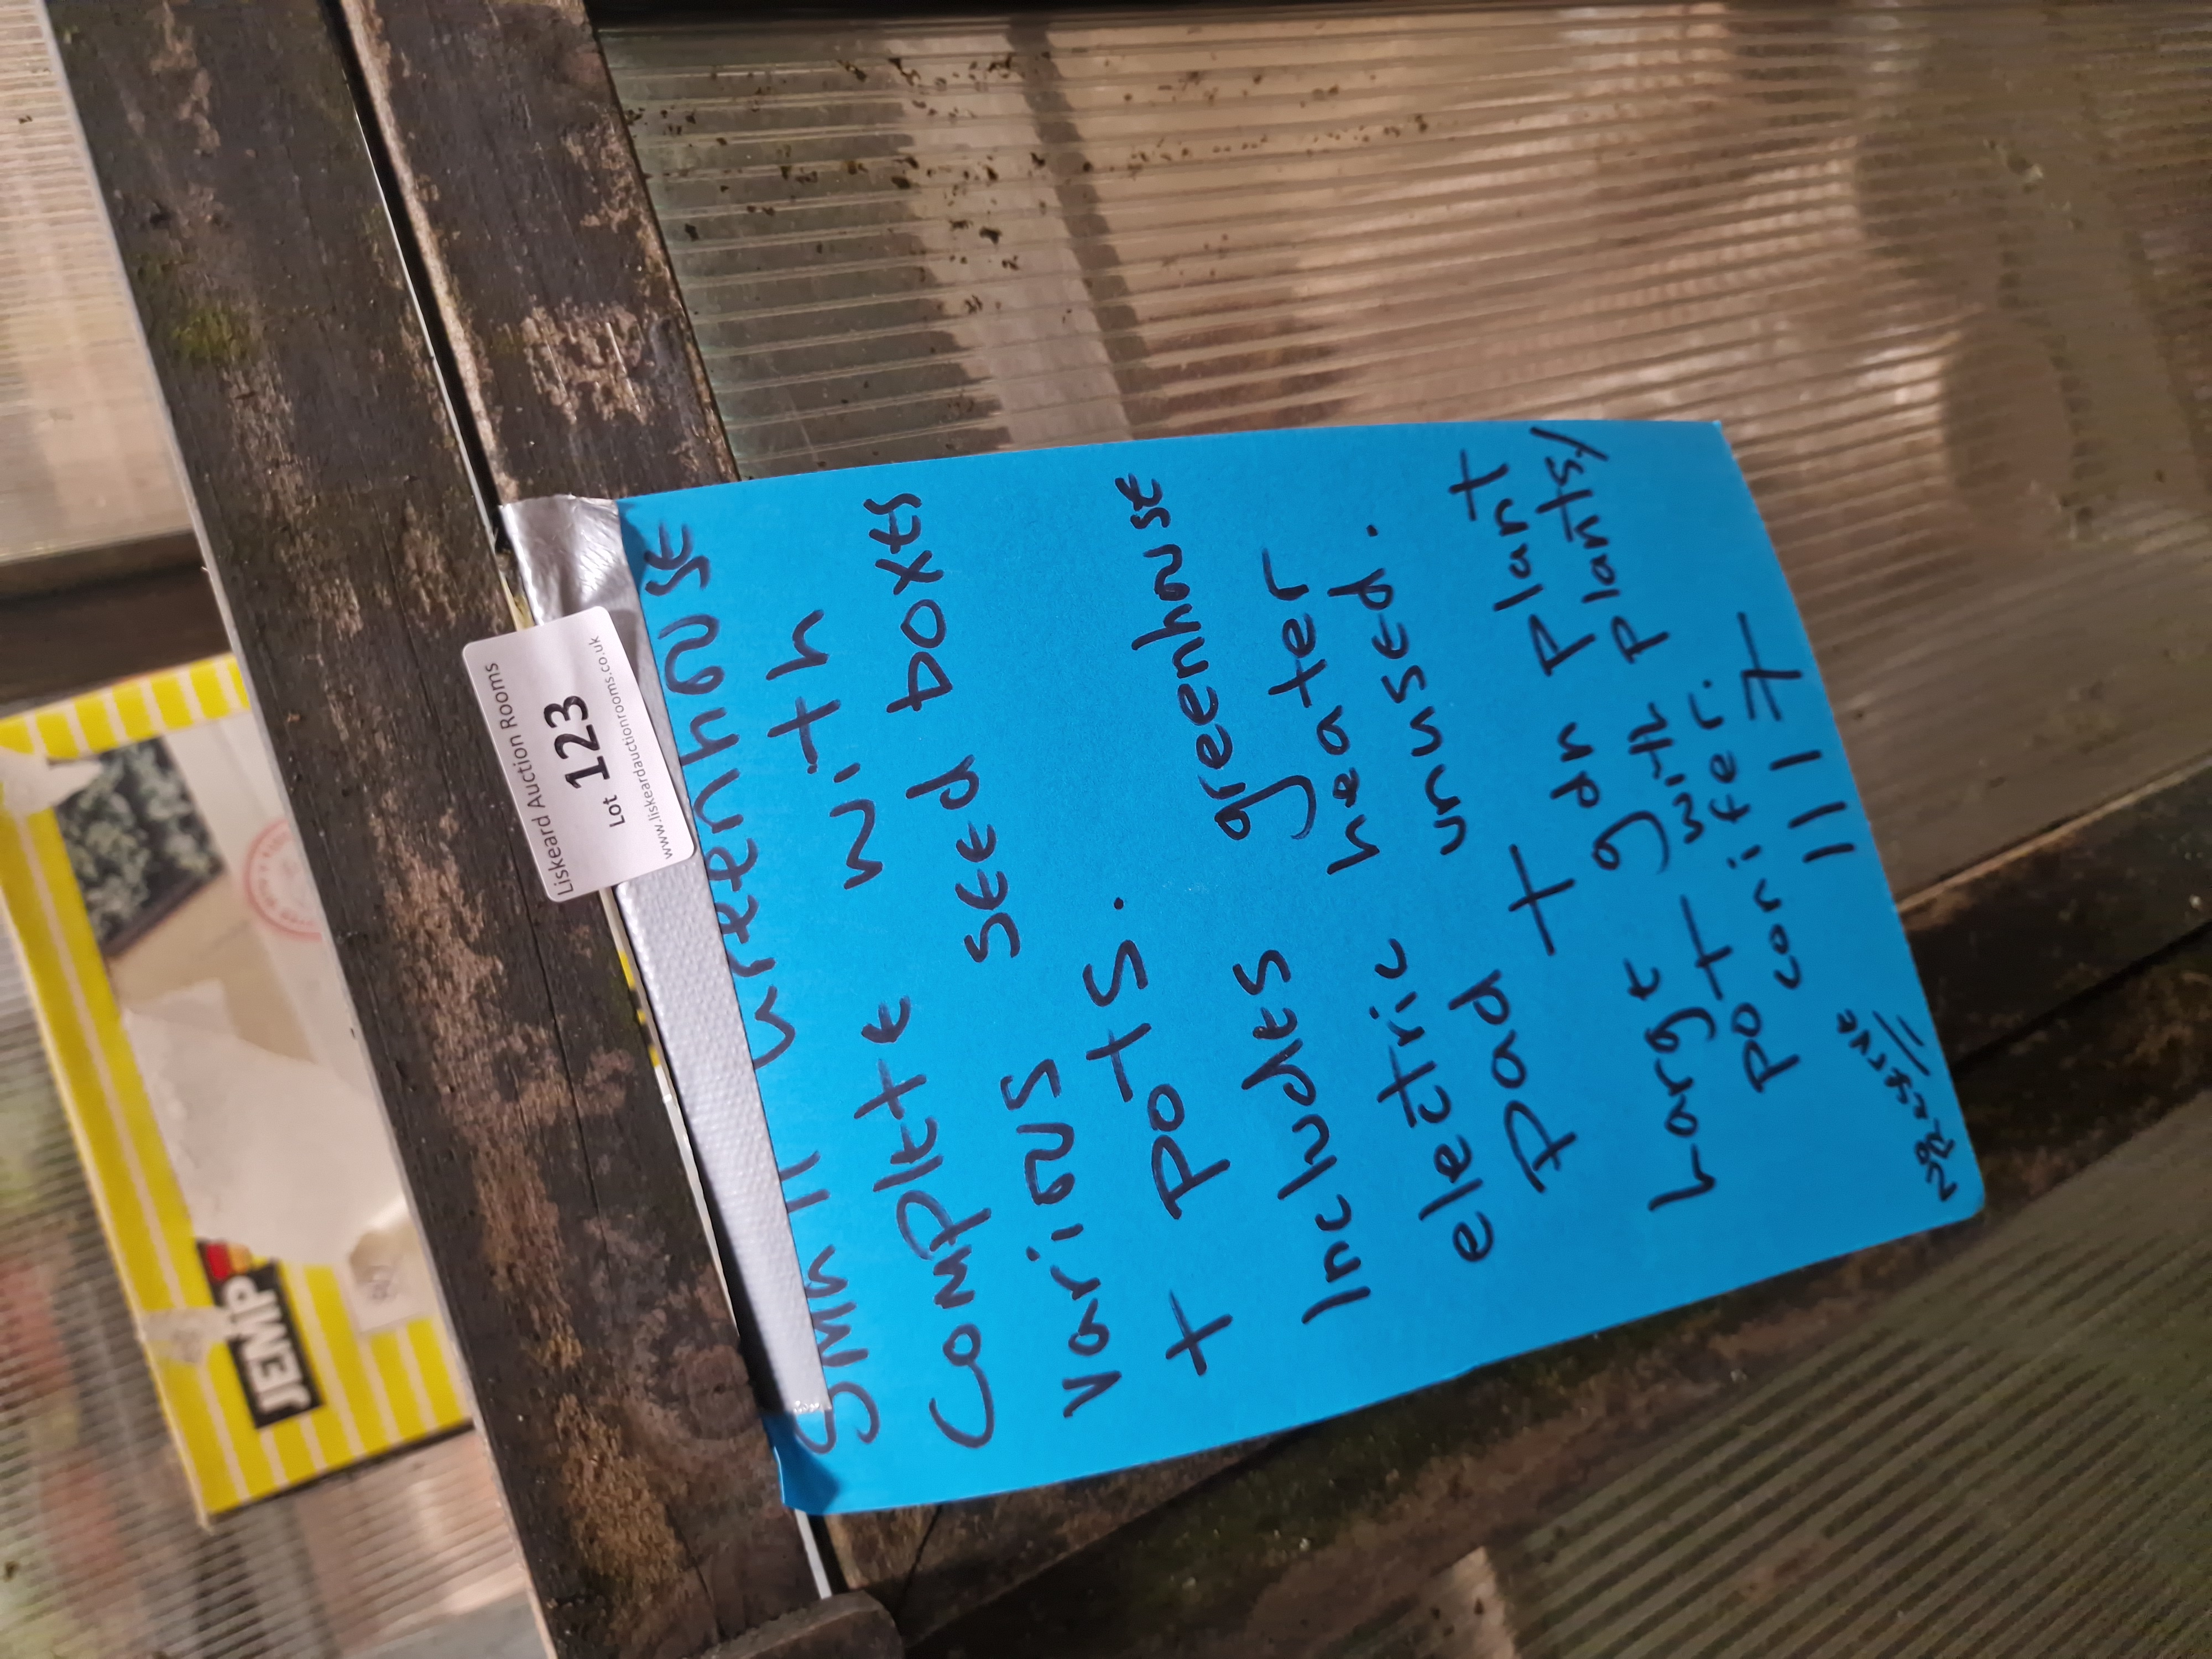 Liskeard Auction Rooms
Lot 123
www.liskeardauctionrooms.co.uk
Small Greenhouse
Complete with
various seed boxes
+ pots.
Includes greenhouse
electric heater
Pad unused.
+
Large gdn Plant +
pot with plants/
conifer.
1117
JEMP